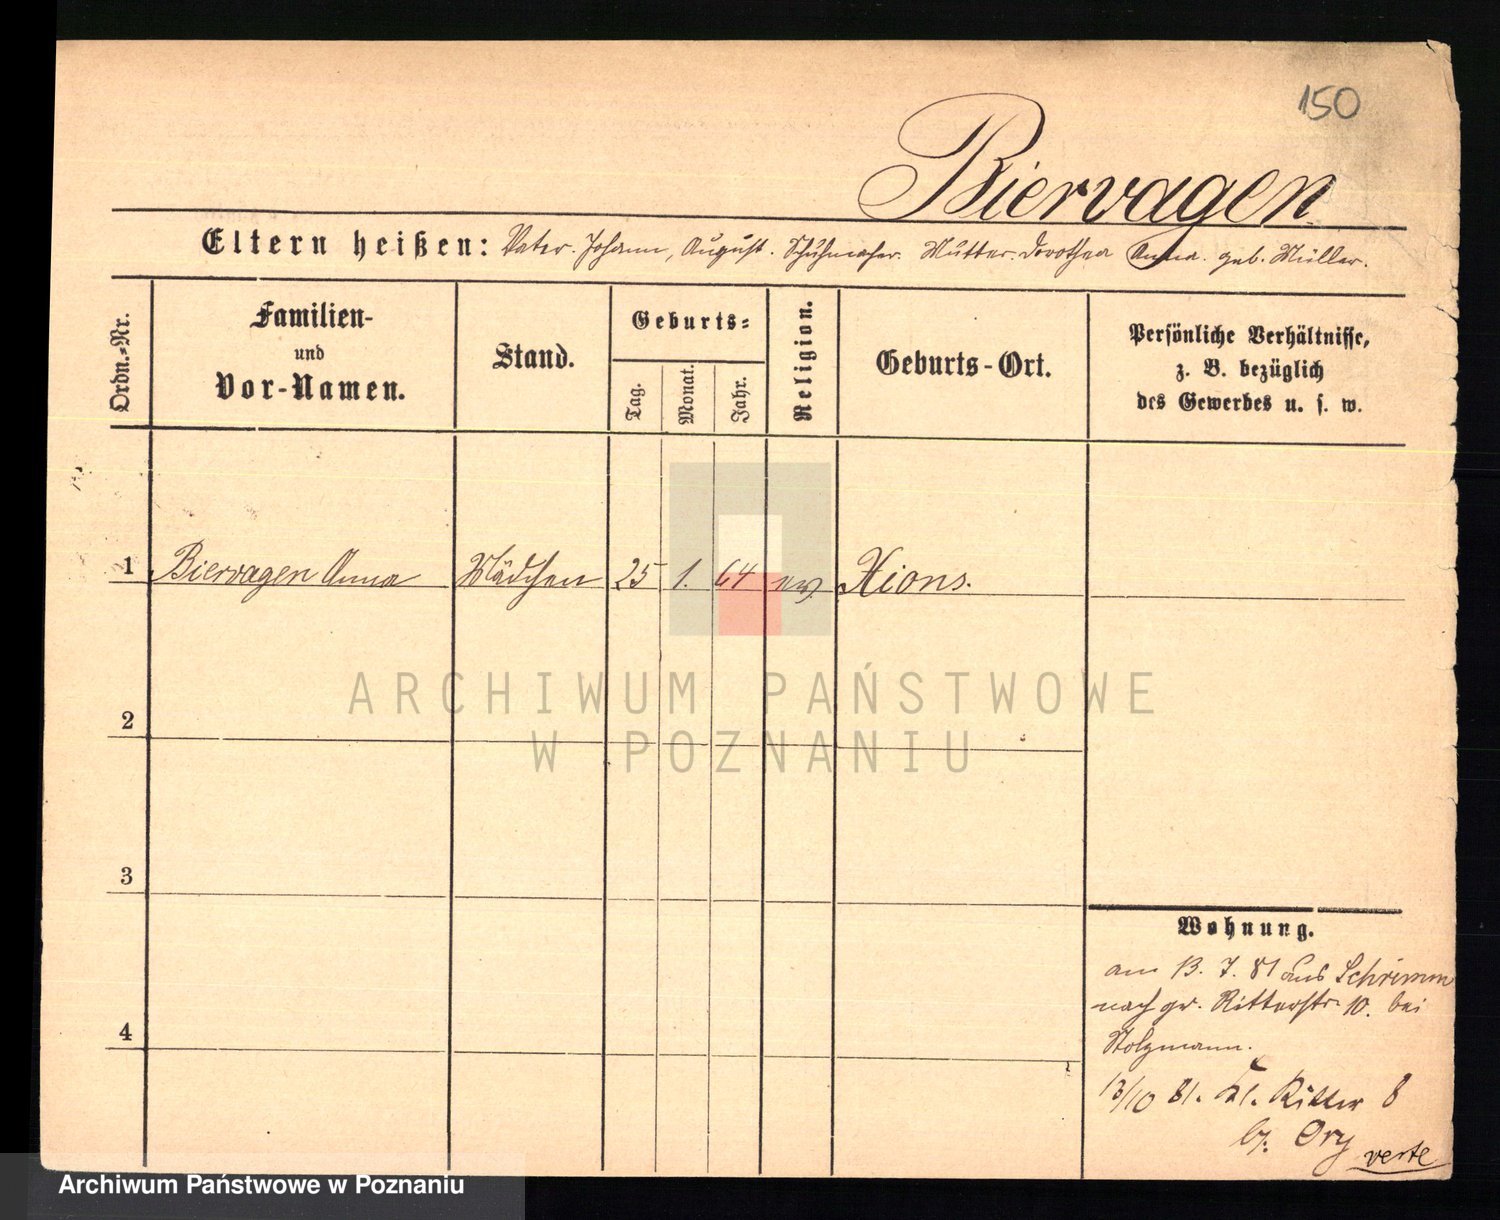 150
Biervagen
Eltern heißen: Vater. Johann, August. Schuhmacher. Mutter. Dorothea Anna. geb. Müller.
Ordn.=Nr.
Familien-
und
Vor-Namen.
Stand.
Geburts=
Tag.
Monat.
Jahr.
Religion.
Geburts-Ort.
Persönliche Verhältnisse,
z. B. bezüglich
des Gewerbes u. s. w.
1 Biervagen Anna Mädchen 25 1. 64 ev. Xions.
ARCHIWUM PAŃSTWOWE
W POZNANIU
2
3
4
Wohnung.
am 13. 7. 81 aus Schrimm
nach gr. Ritterstr. 10. bei
Stolzmann.
13/10 81. Kl. Ritter 8
b/. Ory
verte
Archiwum Państwowe w Poznaniu